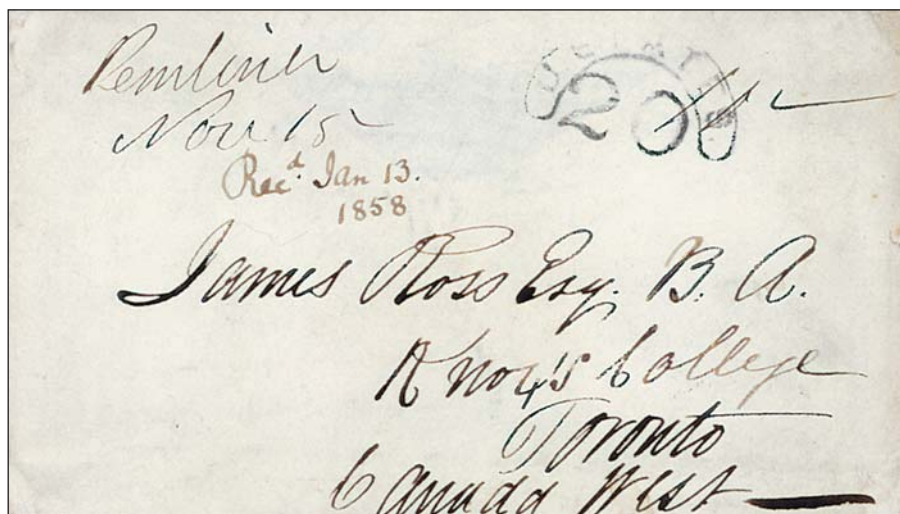 Pembina
Nov 15
Recd. Jan 13.
1858
20
James Ross Esq. B. A.
Knox's College
Toronto
Canada West